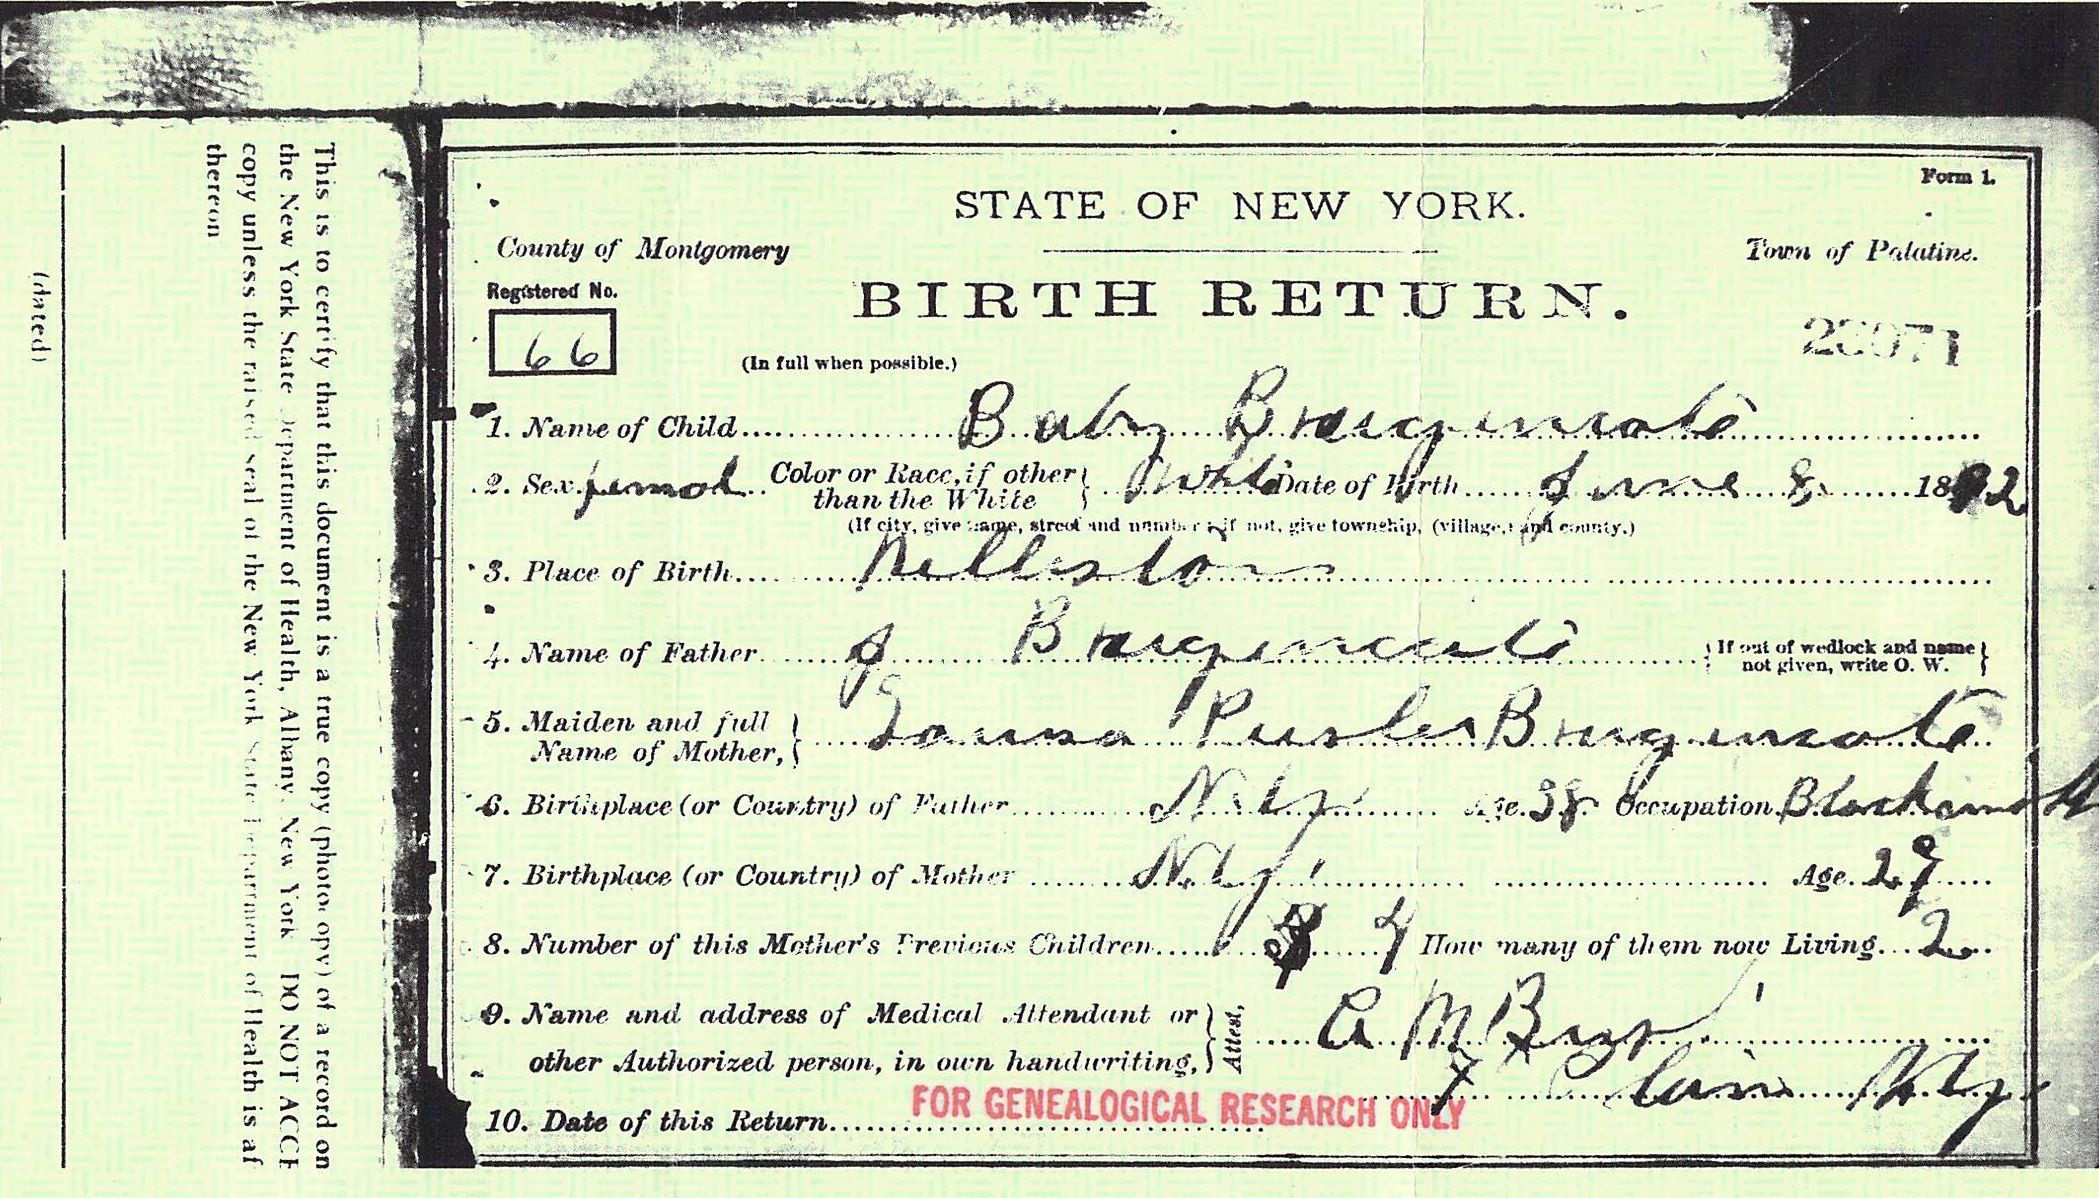 Form 1.
STATE OF NEW YORK.
County of Montgomery
Town of Palatine.
BIRTH RETURN.
Registered No.
66
(In full when possible.)
1. Name of Child Baby
2. Sex femal Color or Race, if other than the White White Date of Birth June 8 1892
(If city, give name, street and number; if not, give township, (village,) and county.)
3. Place of Birth Nelliston
4. Name of Father J
{If out of wedlock and name not given, write O. W.}
5. Maiden and full Name of Mother,
6. Birthplace (or Country) of Father N.Y. Age 38 Occupation Blacksmith
7. Birthplace (or Country) of Mother N.Y. Age 29
8. Number of this Mother's Previous Children 4 How many of them now Living 2
9. Name and address of Medical Attendant or other Authorized person, in own handwriting, Attest,
Plain N.Y.
10. Date of this Return
FOR GENEALOGICAL RESEARCH ONLY
This is to certify that this document is a true copy (photocopy) of a record on
the New York State Department of Health, Albany, New York DO NOT ACCE
copy unless the raised seal of the New York State Department of Health is af
thereon
(dated)